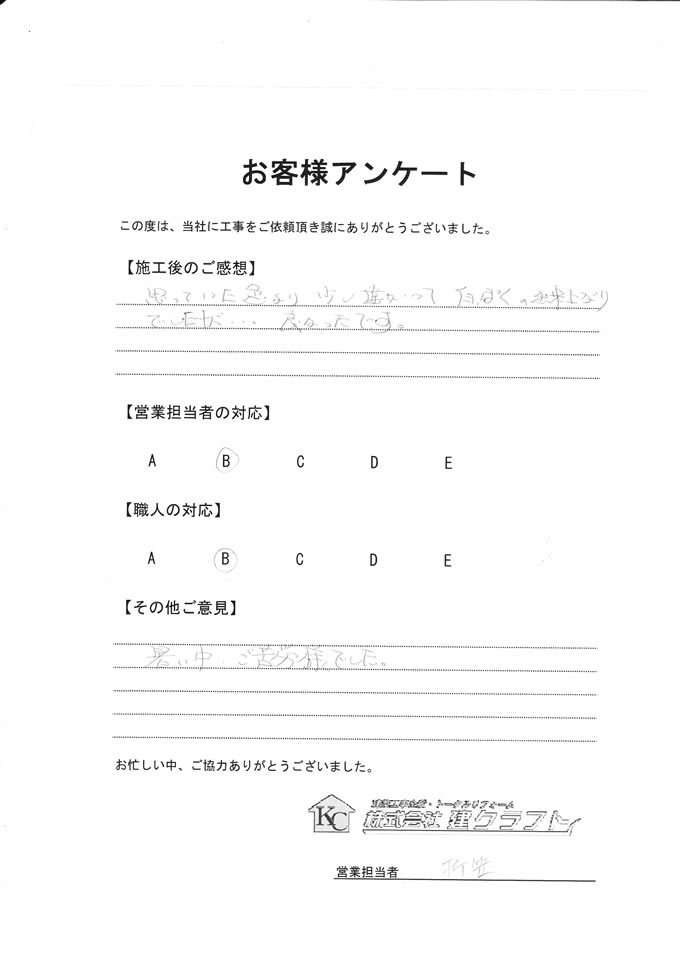 お客様アンケート
この度は、当社に工事をご依頼頂き誠にありがとうございました。
【施工後のご感想】
思っていた色より 少し違かって 白っぽくの出来上がり
でしたが... 良かったです。
【営業担当者の対応】
A B C D E
【職人の対応】
A B C D E
【その他ご意見】
暑い中、ご苦労様でした。
お忙しい中、ご協力ありがとうございました。
KC
建築工事全般・トータルリフォーム
株式会社 建クラフト
営業担当者 折笠